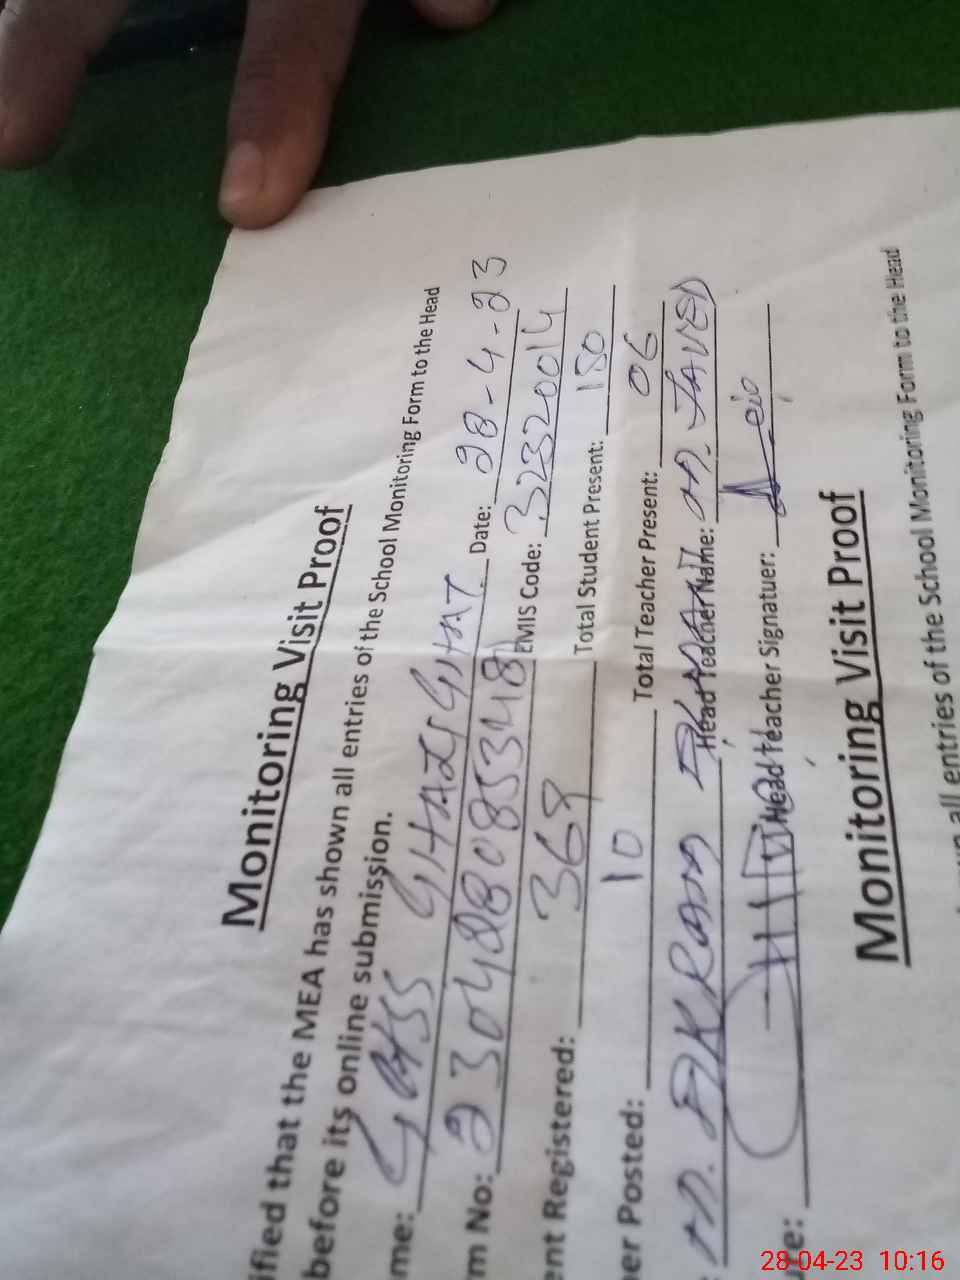 Monitoring Visit Proof
ified that the MEA has shown all entries of the School Monitoring Form to the Head
before its online submission.
me: GHSS GHAZI GHAT Date: 28-4-23
m No: 230428085348 EMIS Code: 32320014
ent Registered: 368 Total Student Present: 180
er Posted: 10 Total Teacher Present: 06
: M. AKRam Head Teacher Name: M. JAVED
re: Head Teacher Signatuer:
Monitoring Visit Proof
all entries of the School Monitoring Form to the Head
28-04-23 10:16